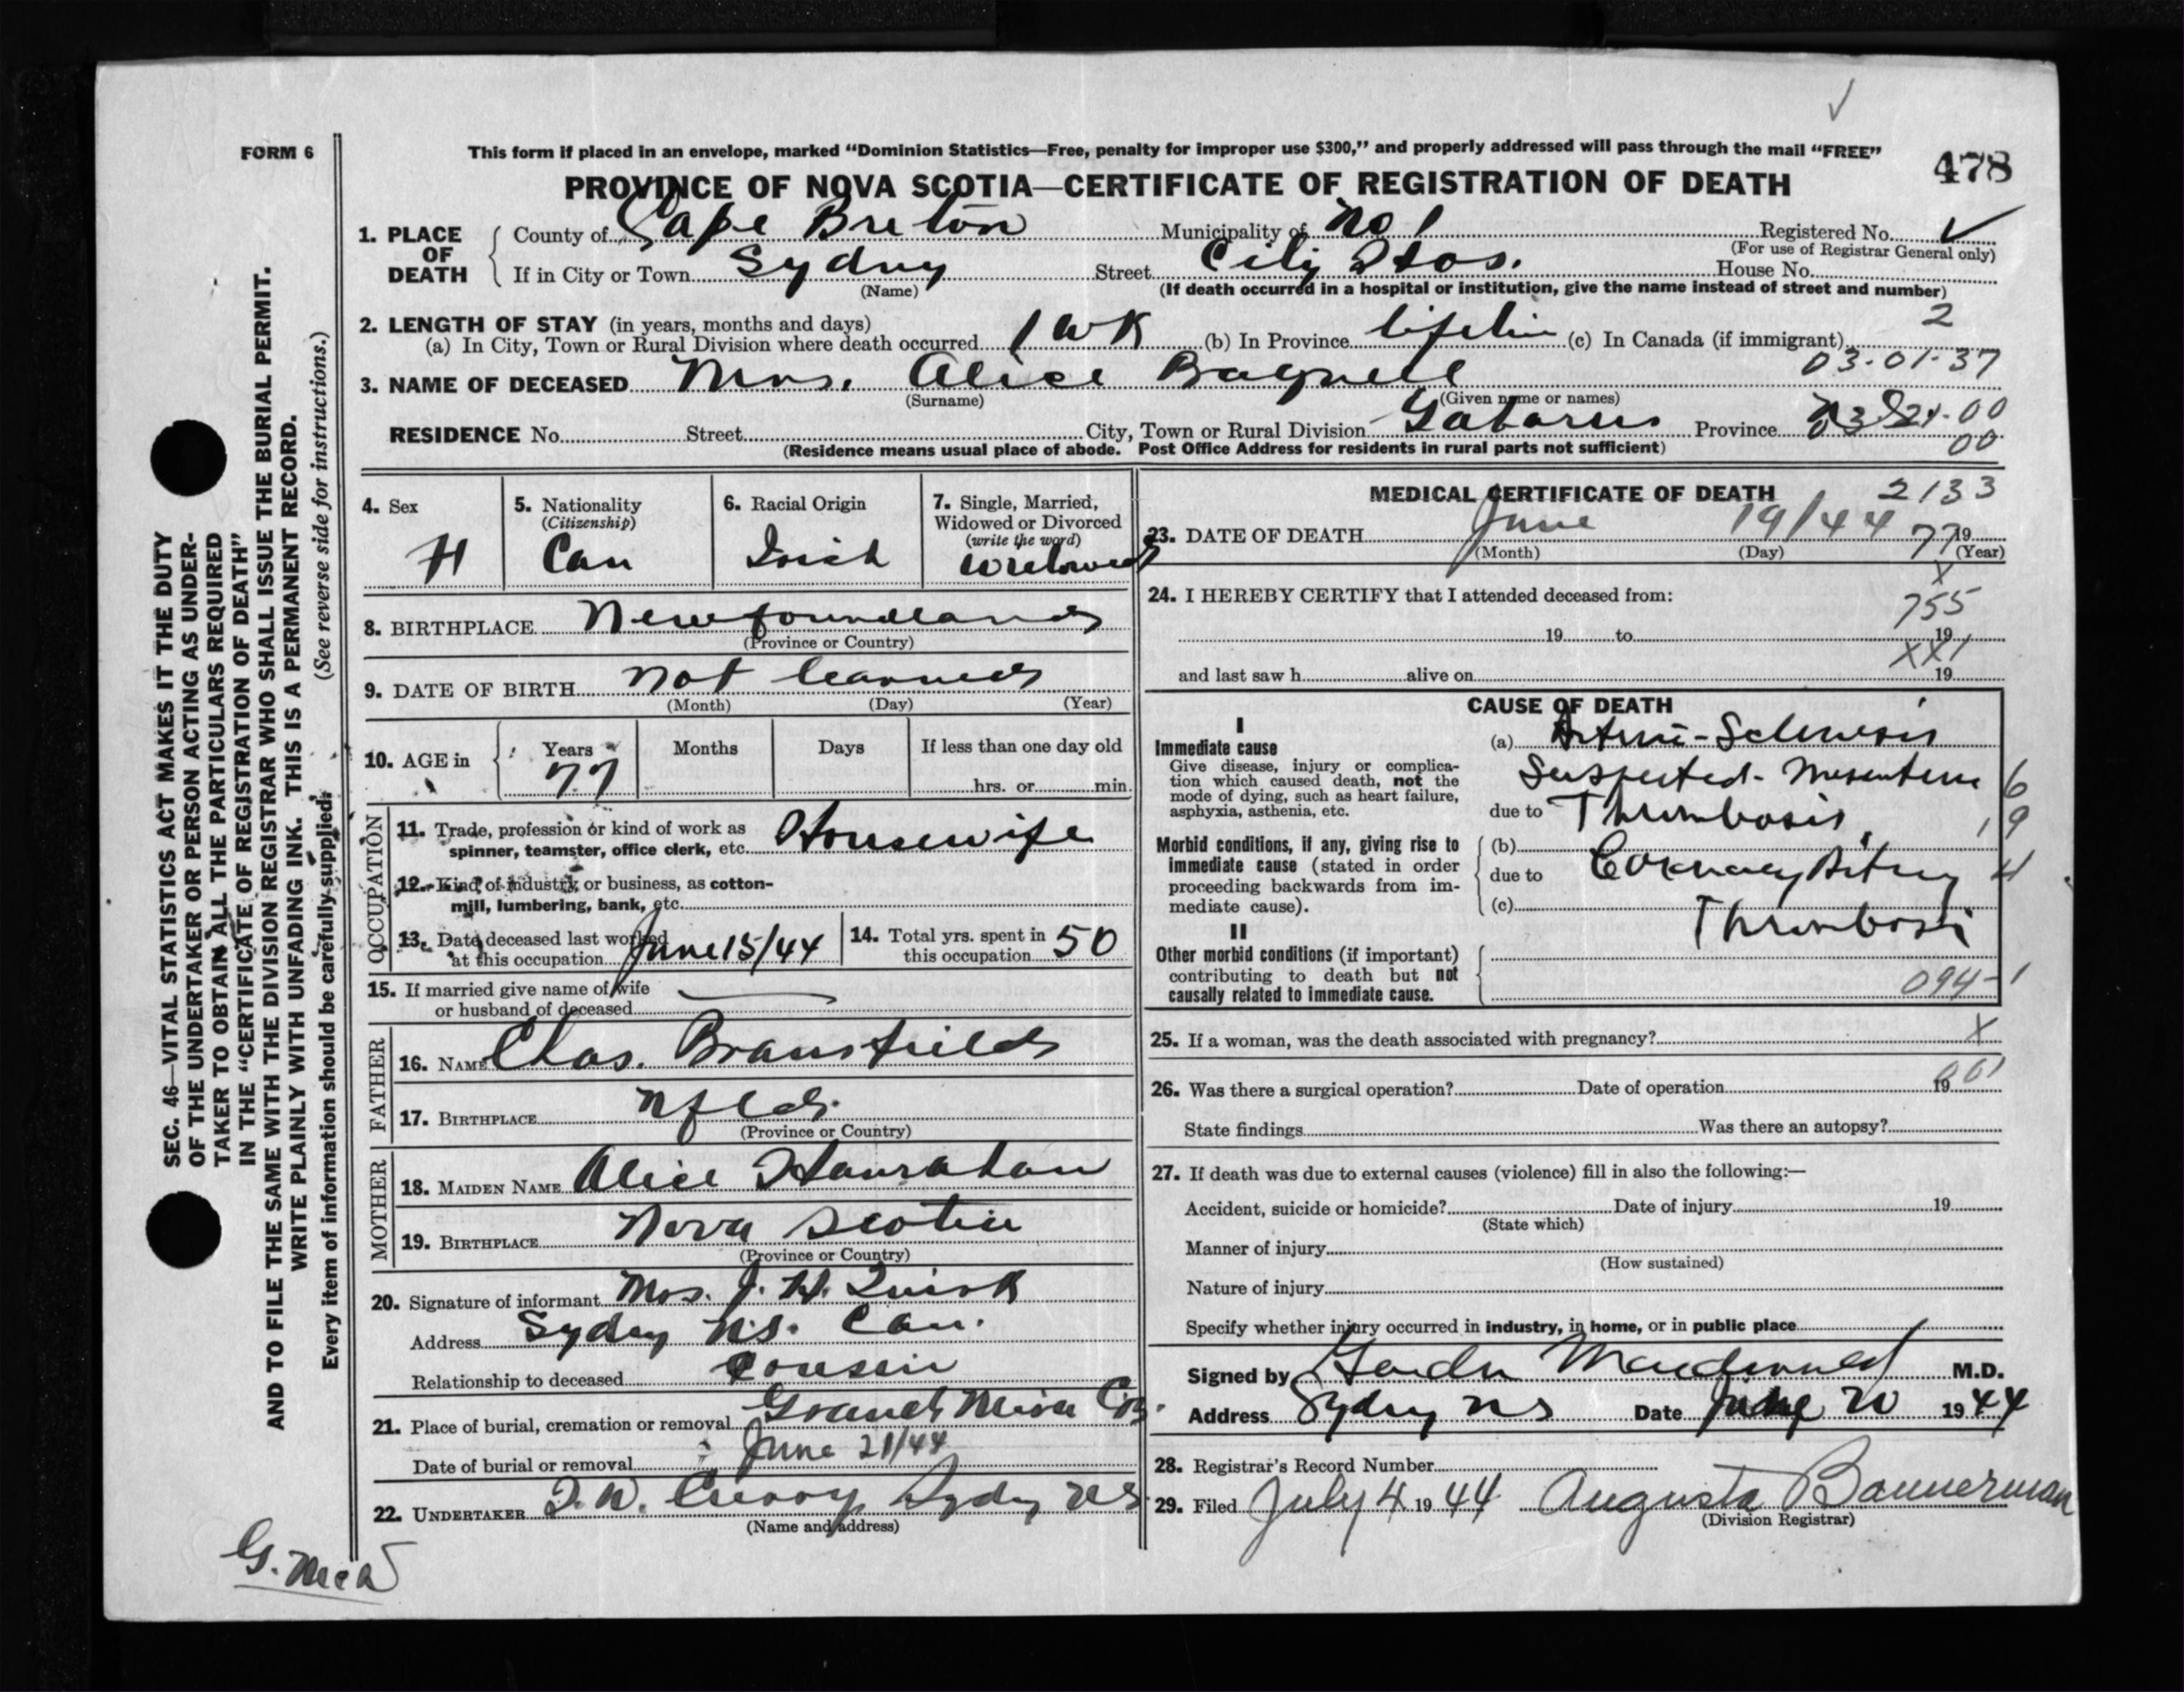 FORM 6
This form if placed in an envelope, marked “Dominion Statistics—Free, penalty for improper use $300,” and properly addressed will pass through the mail “FREE”
478
PROVINCE OF NOVA SCOTIA—CERTIFICATE OF REGISTRATION OF DEATH
1. PLACE OF DEATH
County of Cape Breton Municipality of No 1 Registered No.
(For use of Registrar General only)
If in City or Town Sydney Street City Hos. House No.
(Name) (If death occurred in a hospital or institution, give the name instead of street and number)
2. LENGTH OF STAY (in years, months and days) 2
(a) In City, Town or Rural Division where death occurred 1 WK (b) In Province lifetime (c) In Canada (if immigrant)
03-01-37
3. NAME OF DECEASED Mrs. Alice Bagnell
(Surname) (Given name or names)
RESIDENCE No. Street City, Town or Rural Division Gabarus Province
(Residence means usual place of abode. Post Office Address for residents in rural parts not sufficient) 00
4. Sex
5. Nationality
(Citizenship)
Can
6. Racial Origin
Irish
7. Single, Married,
Widowed or Divorced
(write the word)
widowed
8. BIRTHPLACE Newfoundland
(Province or Country)
9. DATE OF BIRTH not learned
(Month) (Day) (Year)
10. AGE in Years Months Days If less than one day old
77 hrs. or min.
OCCUPATION
11. Trade, profession or kind of work as
spinner, teamster, office clerk, etc. Housewife
12. Kind of industry or business, as cotton-
mill, lumbering, bank, etc.
13. Date deceased last worked
at this occupation June 15/44
14. Total yrs. spent in
this occupation 50
15. If married give name of wife
or husband of deceased
FATHER
16. NAME Chas. Bransfield
17. BIRTHPLACE Nfld.
(Province or Country)
MOTHER
18. MAIDEN NAME Alice Hanrahan
19. BIRTHPLACE Nova Scotia
(Province or Country)
20. Signature of informant Mrs. J. W. Quirk
Address Sydney N.S. Can.
Relationship to deceased cousin
21. Place of burial, cremation or removal Grand Mira C.B.
Date of burial or removal June 21/44
22. UNDERTAKER Curry Sydney NS
(Name and address)
MEDICAL CERTIFICATE OF DEATH 2133
23. DATE OF DEATH June 19/44 77 19
(Month) (Day) (Year)
X
24. I HEREBY CERTIFY that I attended deceased from:
755
19 to 19
XX1
and last saw h alive on 19
CAUSE OF DEATH
I
Immediate cause
Give disease, injury or complica-
tion which caused death, not the
mode of dying, such as heart failure,
asphyxia, asthenia, etc.
(a) Arterio-Sclerosis
Suspected-Mesenteric 6
due to Thrombosis 19
Morbid conditions, if any, giving rise to
immediate cause (stated in order
proceeding backwards from im-
mediate cause).
(b)
due to Coronary Artery 4
(c) Thrombosis
II
Other morbid conditions (if important)
contributing to death but not
causally related to immediate cause.
094-1
25. If a woman, was the death associated with pregnancy? X
26. Was there a surgical operation? Date of operation 19
State findings Was there an autopsy?
27. If death was due to external causes (violence) fill in also the following:—
Accident, suicide or homicide? Date of injury 19
(State which)
Manner of injury
(How sustained)
Nature of injury
Specify whether injury occurred in industry, in home, or in public place
Signed by Gordon Macdonald M.D.
Address Sydney NS Date June 20 1944
28. Registrar's Record Number
29. Filed July 4 1944 Augusta Bannerman
(Division Registrar)
SEC. 46—VITAL STATISTICS ACT MAKES IT THE DUTY
OF THE UNDERTAKER OR PERSON ACTING AS UNDER-
TAKER TO OBTAIN ALL THE PARTICULARS REQUIRED
IN THE “CERTIFICATE OF REGISTRATION OF DEATH”
AND TO FILE THE SAME WITH THE DIVISION REGISTRAR WHO SHALL ISSUE THE BURIAL PERMIT.
WRITE PLAINLY WITH UNFADING INK. THIS IS A PERMANENT RECORD.
Every item of information should be carefully supplied. (See reverse side for instructions.)